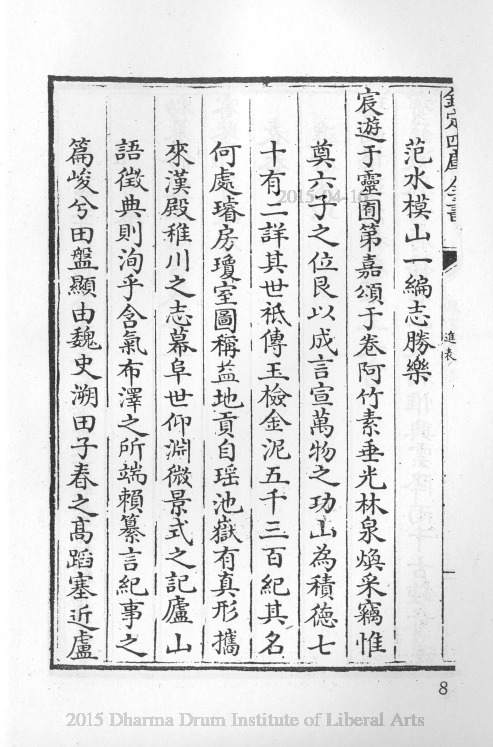 欽定四庫全書
進表
范水模山一編志勝樂
宸遊于靈囿第嘉頌于卷阿竹素垂光林泉煥采竊惟
奠六子之位艮以成言宣萬物之功山為積徳七
十有二詳其世祗傳玉檢金泥五千三百紀其名
何處璿房瓊室圖稱葢地貢自瑶池嶽有真形攜
來漢殿稚川之志幕阜世仰淵微景式之記廬山
語徴典則洵乎含氣布澤之所端賴纂言紀事之
篇峻兮田盤顯由魏史溯田子春之髙蹈塞近盧
8
2015-04-10
2015 Dharma Drum Institute of Liberal Arts